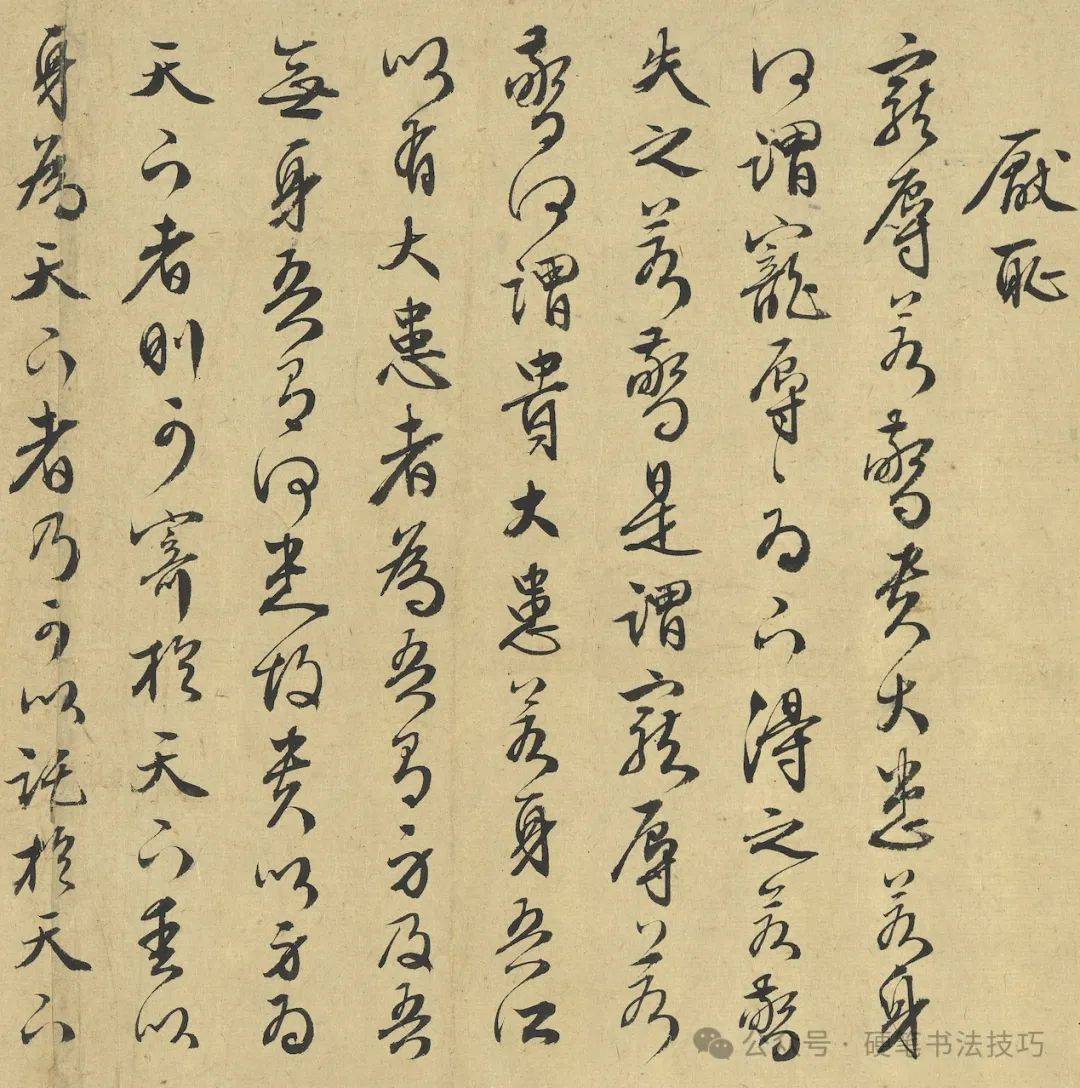 厭耻
寵辱若驚貴大患若身
何謂寵辱〻為下得之若驚
失之若驚是謂寵辱若
驚何謂貴大患若身吾所
以有大患者為吾有身及吾
無身吾有何患故貴以身為
天下者則可寄於天下愛以
身為天下者乃可以託於天下
公众号·硬笔书法技巧